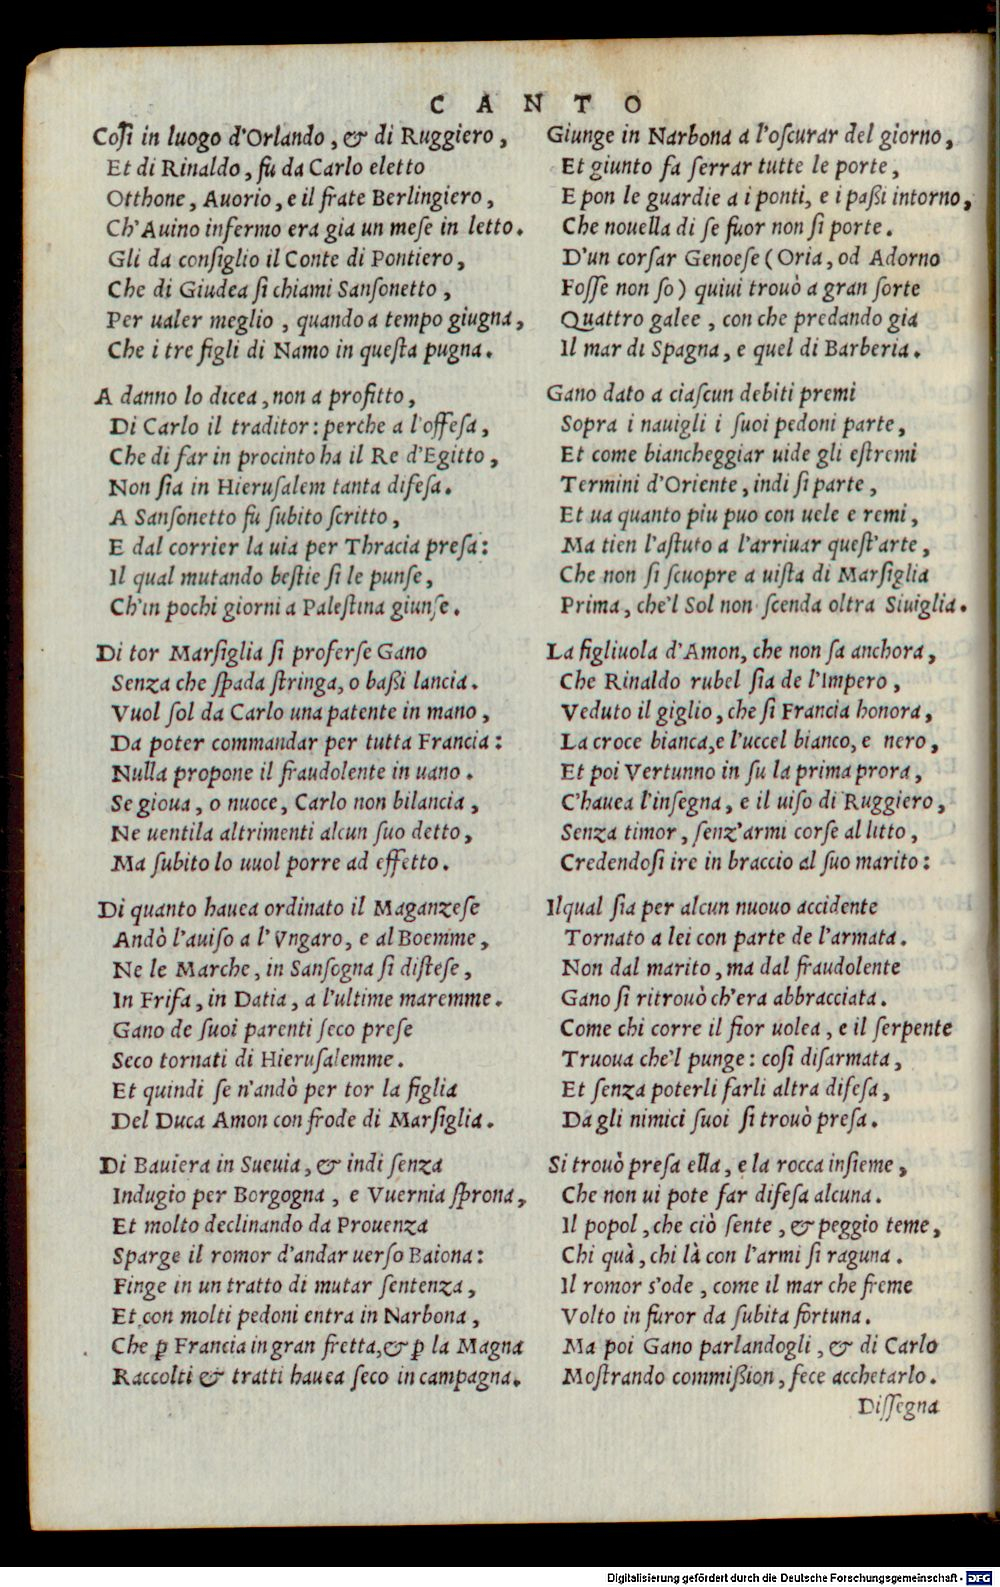 CANTO
Coſi in luogo d'Orlando, & di Ruggiero,
Et di Rinaldo, fu da Carlo eletto
Otthone, Auorio, e il frate Berlingiero,
Ch'Auino infermo era gia un meſe in letto.
Gli da conſiglio il Conte di Pontiero,
Che di Giudea ſi chiami Sanſonetto,
Per ualer meglio, quando a tempo giugna,
Che i tre figli di Namo in queſta pugna.
A danno lo dicea, non a profitto,
Di Carlo il traditor: perche a l'offeſa,
Che di far in procinto ha il Re d'Egitto,
Non ſia in Hieruſalem tanta difeſa.
A Sanſonetto fu ſubito ſcritto,
E dal corrier la uia per Thracia preſa:
Il qual mutando beſtie ſi le punſe,
Ch'in pochi giorni a Paleſtina giunſe.
Di tor Marſiglia ſi proferſe Gano
Senza che ſpada ſtringa, o baßi lancia.
Vuol ſol da Carlo una patente in mano,
Da poter commandar per tutta Francia:
Nulla propone il fraudolente in uano.
Se gioua, o nuoce, Carlo non bilancia,
Ne uentila altrimenti alcun ſuo detto,
Ma ſubito lo uuol porre ad effetto.
Di quanto hauea ordinato il Maganzeſe
Andò l'auiſo a l'Vngaro, e al Boemme,
Ne le Marche, in Sanſogna ſi diſteſe,
In Friſa, in Datia, a l'ultime maremme.
Gano de ſuoi parenti ſeco preſe
Seco tornati di Hieruſalemme.
Et quindi ſe n'andò per tor la figlia
Del Duca Amon con frode di Marſiglia.
Di Bauiera in Sueuia, & indi ſenza
Indugio per Borgogna, e Vuernia ſprona,
Et molto declinando da Prouenza
Sparge il romor d'andar uerſo Baiona:
Finge in un tratto di mutar ſentenza,
Et con molti pedoni entra in Narbona,
Che ꝑ Francia in gran fretta, & ꝑ la Magna
Raccolti & tratti hauea ſeco in campagna.
Giunge in Narbona a l'oſcurar del giorno,
Et giunto fa ſerrar tutte le porte,
E pon le guardie a i ponti, e i paßi intorno,
Che nouella di ſe fuor non ſi porte.
D'un corſar Genoeſe (Oria, od Adorno
Foſſe non ſo) quiui trouò a gran ſorte
Quattro galee, con che predando gia
Il mar di Spagna, e quel di Barberia.
Gano dato a ciaſcun debiti premi
Sopra i nauigli i ſuoi pedoni parte,
Et come biancheggiar uide gli eſtremi
Termini d'Oriente, indi ſi parte,
Et ua quanto piu puo con uele e remi,
Ma tien l'aſtuto a l'arriuar queſt'arte,
Che non ſi ſcuopre a uiſta di Marſiglia
Prima, che'l Sol non ſcenda oltra Siuiglia.
La figliuola d'Amon, che non ſa anchora,
Che Rinaldo rubel ſia de l'Impero,
Veduto il giglio, che ſi Francia honora,
La croce bianca, e l'uccel bianco, e nero,
Et poi Vertunno in ſu la prima prora,
C'hauea l'inſegna, e il uiſo di Ruggiero,
Senza timor, ſenz'armi corſe al litto,
Credendoſi ire in braccio al ſuo marito:
Ilqual ſia per alcun nuouo accidente
Tornato a lei con parte de l'armata.
Non dal marito, ma dal fraudolente
Gano ſi ritrouò ch'era abbracciata.
Come chi corre il fior uolea, e il ſerpente
Truoua che'l punge: coſi diſarmata,
Et ſenza poterli farli altra difeſa,
Da gli nimici ſuoi ſi trouò preſa.
Si trouò preſa ella, e la rocca inſieme,
Che non ui pote far difeſa alcuna.
Il popol, che ciò ſente, & peggio teme,
Chi quà, chi là con l'armi ſi raguna.
Il romor s'ode, come il mar che freme
Volto in furor da ſubita fortuna.
Ma poi Gano parlandogli, & di Carlo
Moſtrando commißion, fece acchetarlo.
Diſſegna
Digitalisierung gefördert durch die Deutsche Forschungsgemeinschaft - DFG